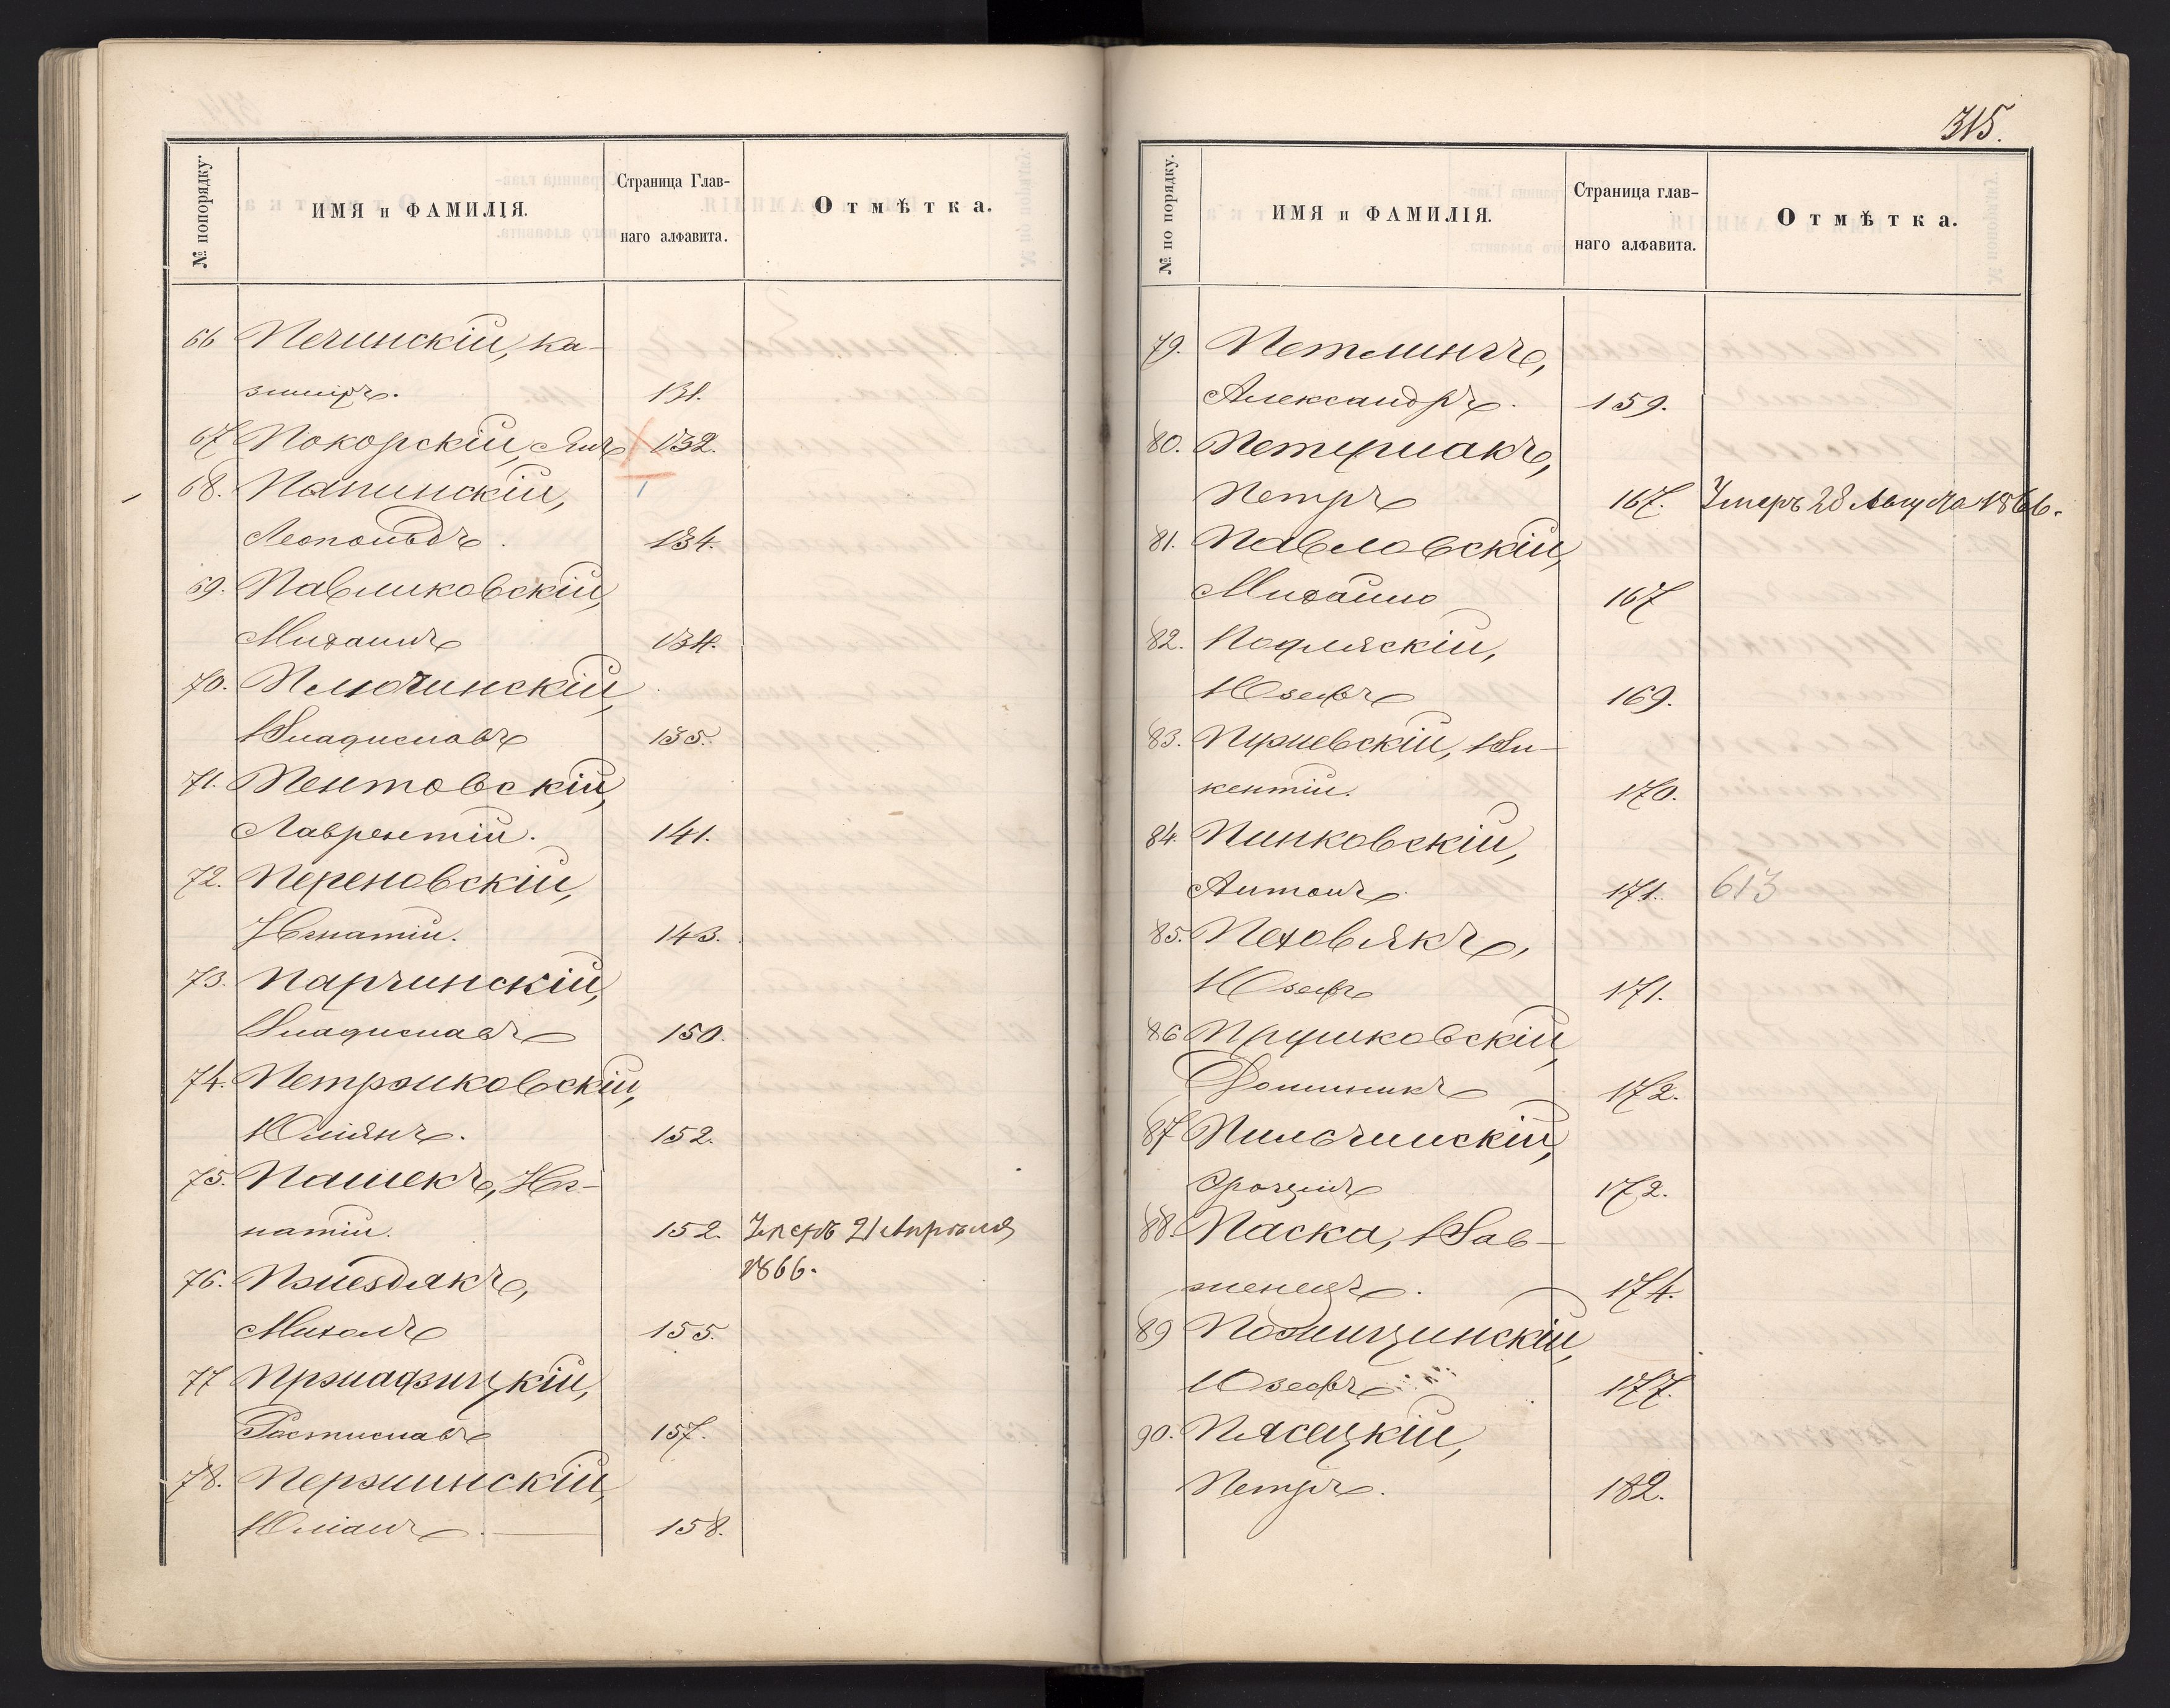 № попорядку.
ИМЯ и ФАМИЛІЯ.
Страница Глав-
наго алфавита.
Отмѣтка.
66 Печинскій, Ка-
зиміръ. 131.
67 Покорскій, Янъ 132.
68. Папинскій,
Леопольдъ. 134.
69. Павликовскій,
Михаилъ 134.
70. Плючинскій,
Владиславъ 135.
71. Пентовскій,
Лаврентій. 141.
72. Переновскій,
Игнатій. 143.
73. Парчинскій,
Владиславъ 150.
74. Петржиковскій,
Юліянъ. 152.
75. Пашекъ, Иг-
натій. 152. Умеръ 21 Апрѣля
1866.
76. Пжездякъ,
Михалъ 155.
77 Пржиадзицкій,
Растиславъ 157.
78. Пержинскій,
Юліанъ. 158.
315.
№ по порядку.
ИМЯ и ФАМИЛІЯ.
Страница глав-
наго алфавита.
Отмѣтка.
79. Петлингъ,
Александръ. 159.
80. Петрушакъ,
Петръ 167. Умеръ 28 Августа 1866.
81. Павловскій,
Михайло 167
82. Подляскій,
Юзефъ 169.
83. Ви-
кентій. 170.
84. Пинковскій,
Антонъ 171. 613
85. Пеховякъ,
Юзефъ 171.
86 Прушковскій
Доминикъ 172.
87 Пильчинскій,
172.
88. Паска, Вав-
женецъ. 174.
89
Юзефъ 177.
90. Пясецкій,
Петръ. 182.